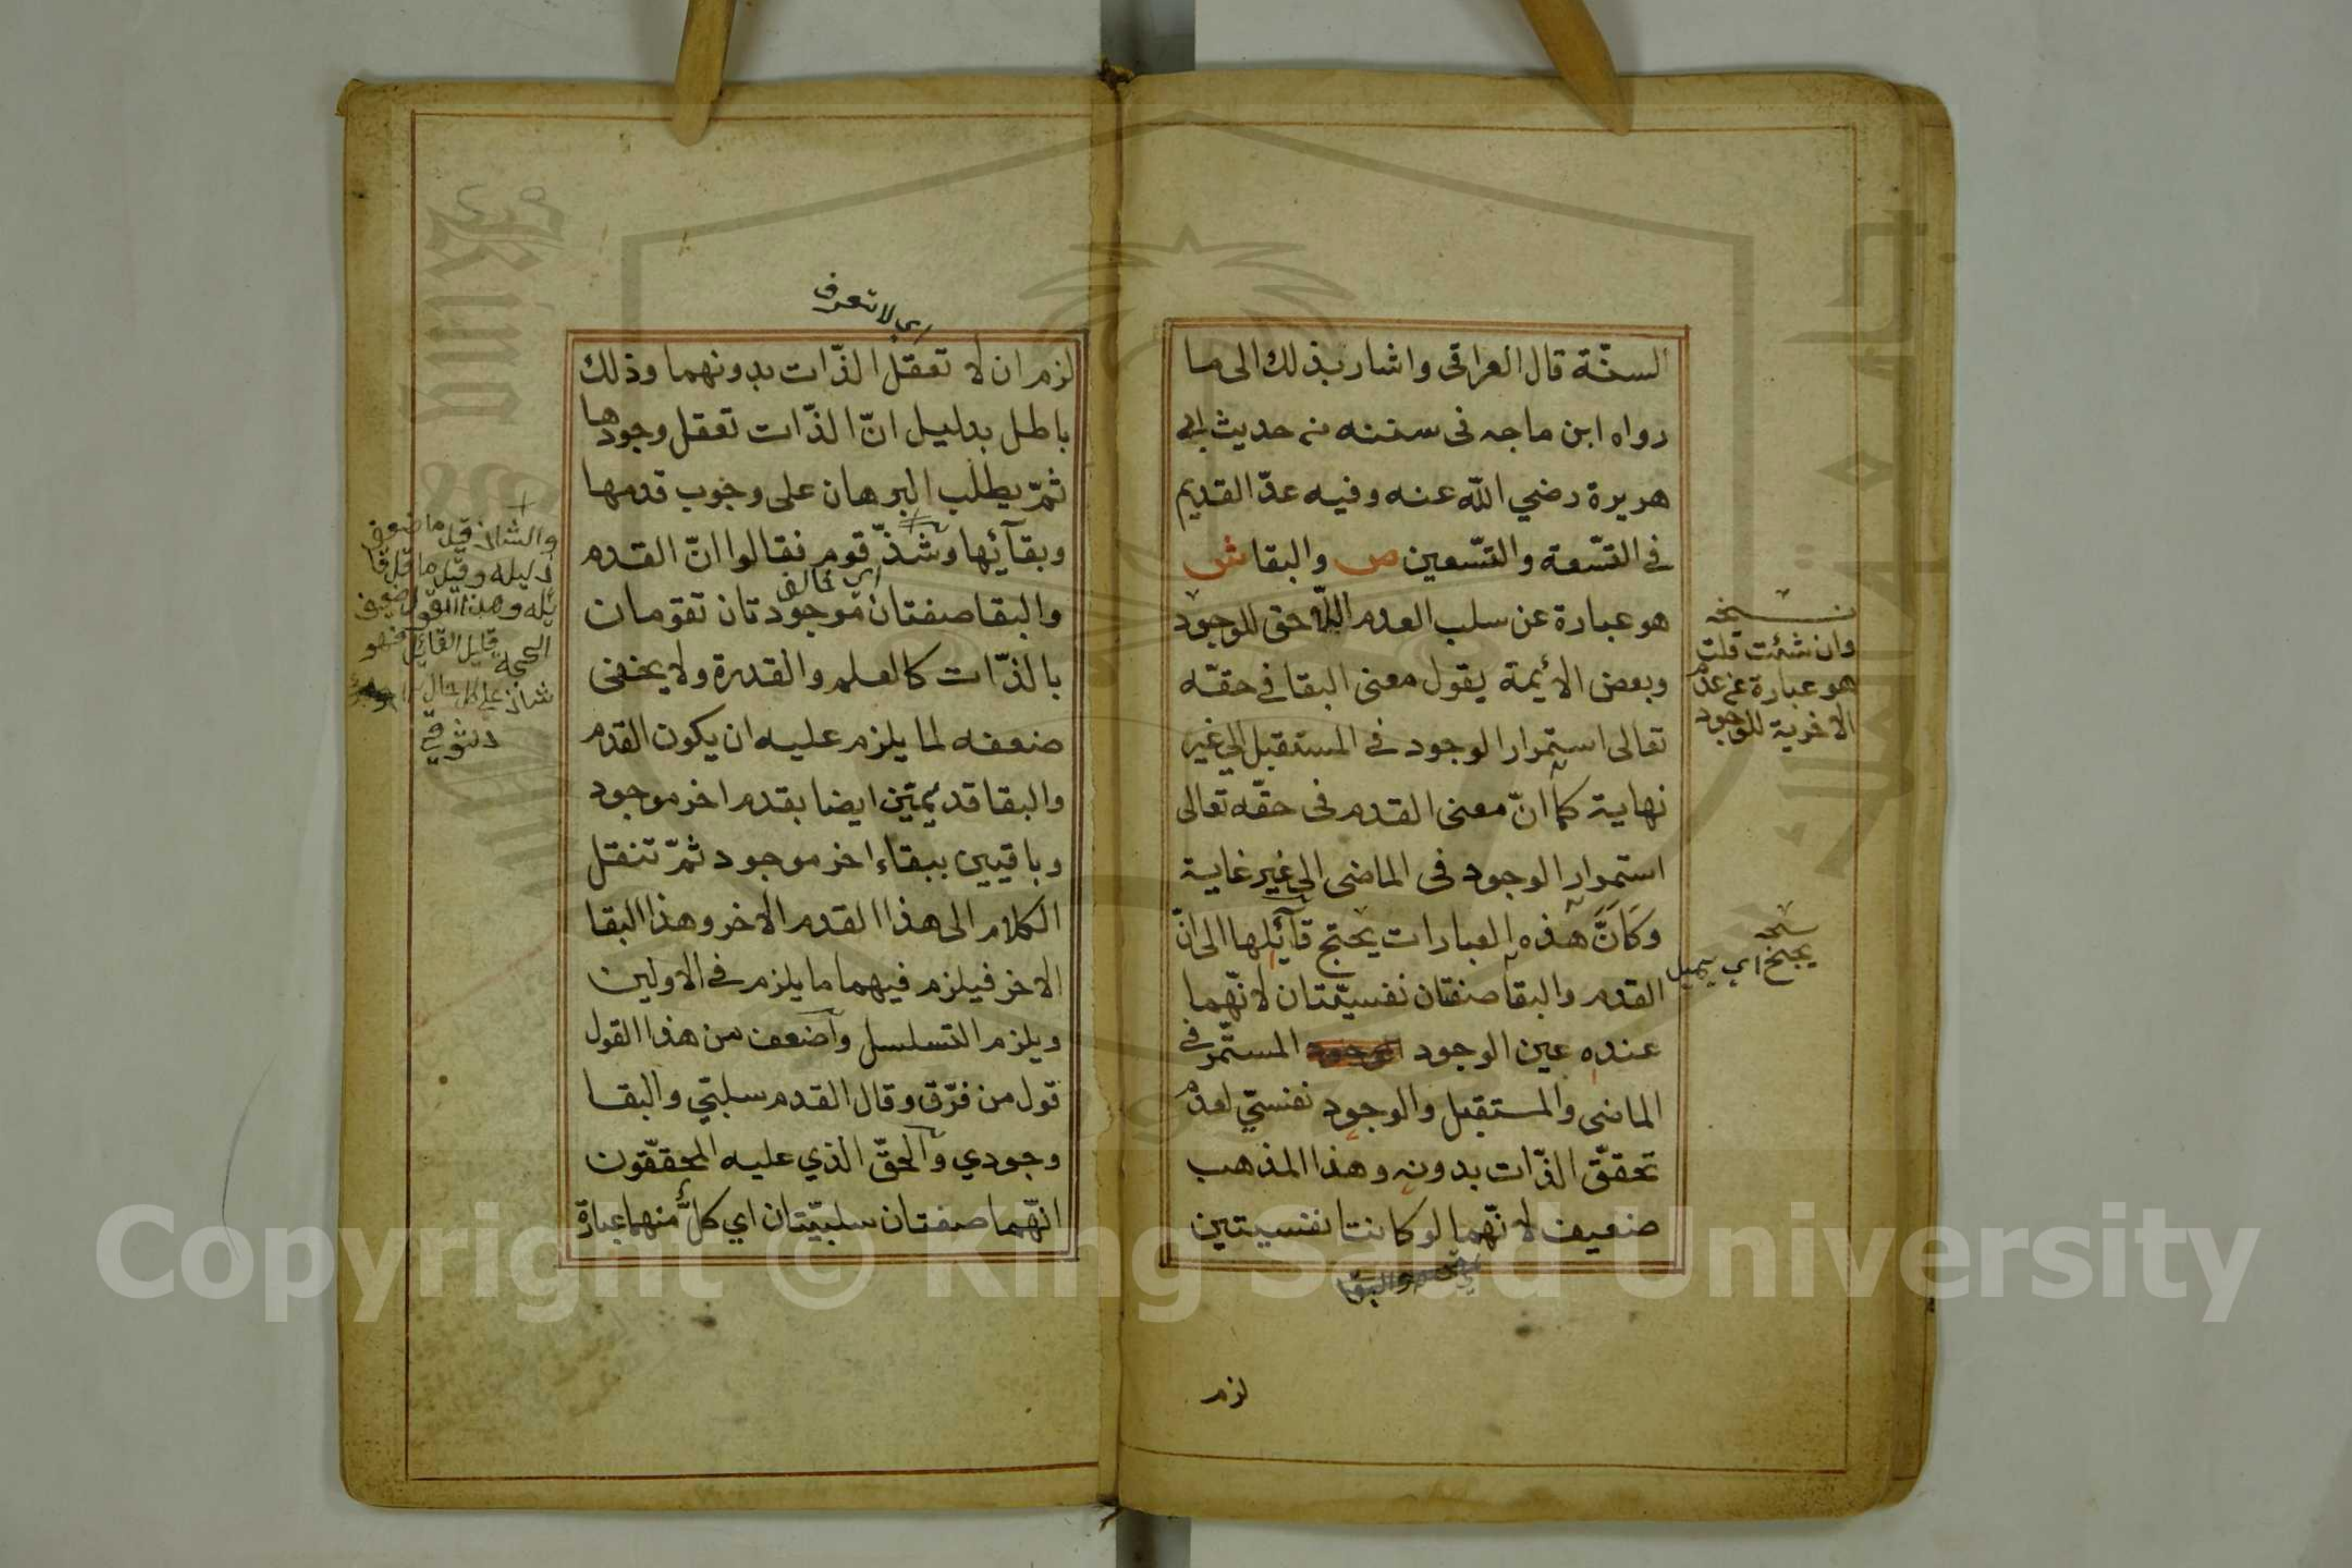 السنّة قال العراقى واشار بذلك الى ما
رواه ابن ماجه فى سننه من حديث ابي
هريرة رضي اللّه عنه وفيه عدّ القديم
فى التّسعة والتّسعين ص والبقا ش
هو عبارة عن سلب العدم اللّاحق للوجود
وبعض الأئمة يقول معنى البقا فى حقّه
تعالى استمرار الوجود فى المستقبل الى غير
نهاية كما انّ معنى القدم فى حقّه تعالى
استمرار الوجود فى الماضى الى غير غاية
وَكَاَنَّ هذه العبارات يحتج قآئلها الى انّ
القدم والبقا صفتان نفسيّتان لانّهما
عنده عين الوجود المستمّر فى
الماضى والمستقبل والوجود نفسيّ لعدم
تحقّق الذّات بدونه وهذا المذهب
ضعيف لانّهما لو كانتا نفسيتين
والبقا
لزم
نسخه
وان شئت قلت
هو عبارة عن عدم
الاخرية للوجود
نسخه
يجنح اي يميل
اي لا تعرف
لزم ان لا تعقل الذّات بدونهما وذلك
باطل بدليل انّ الذّات تعقل وجودها
ثمّ يطلب البرهان على وجوب قدمها
وبقآئها وشذّ قوم فقالوا انّ القدم
اي خالف
والبقا صفتان موجودتان تقومان
بالذّات كالعلم والقدرة ولا يخفى
ضعفه لما يلزم عليه ان يكون القدم
والبقا قديمين ايضا بقدم اخر موجود
وباقيين ببقاء اخر موجود ثمّ تنقل
الكلام الى هذا القدم الاخر وهذا البقا
الاخر فيلزم فيهما ما يلزم فى الاولين
ويلزم التسلسل وأضعف من هذا القول
قول من فرّق وقال القدم سلبيّ والبقا
وجودي والحقّ الذي عليه المحقّقون
انّهما صفتان سلبيّتان اي كلّ منهما عبارة
والشاذ قيل ما ضعف
دليله وقيل ما قل قا
ئله وهذا القول ضعيف
الحجة قليل القائل فهو
شاذ على كل حال
دسوقي
Copyright © King Saud University